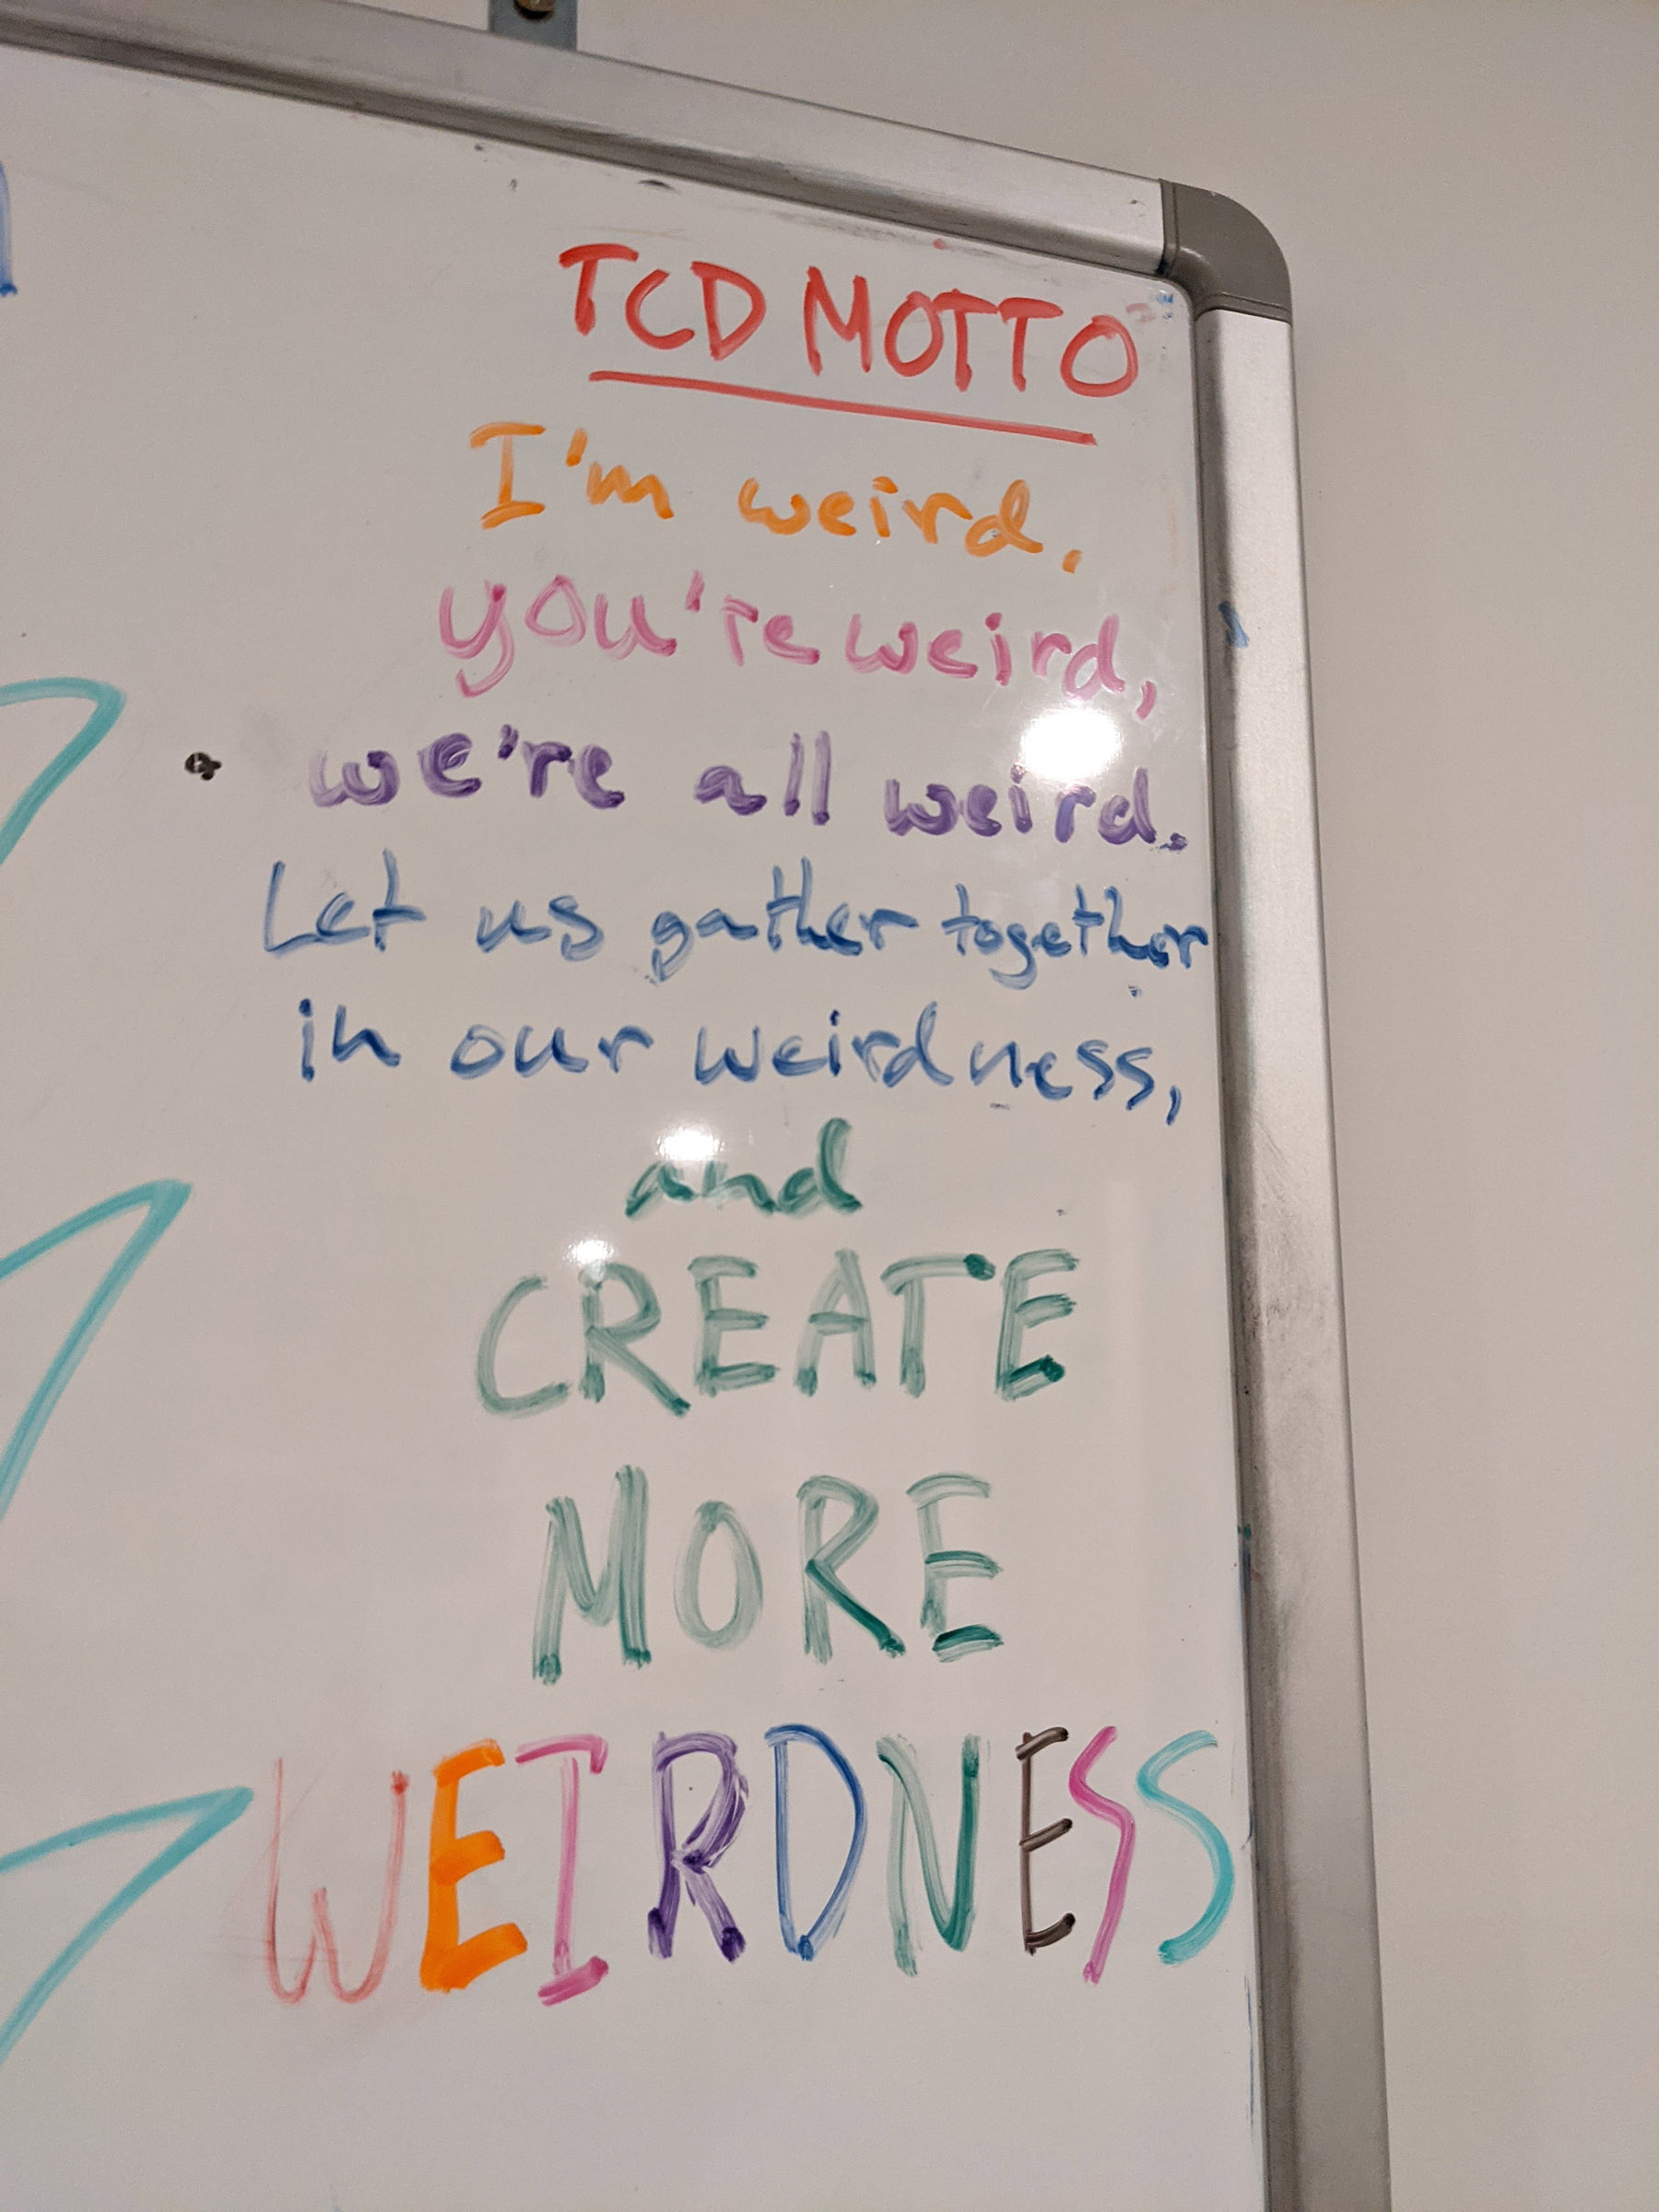 TCD MOTTO
I'm weird,
you're weird,
we're all weird.
Let us gather together
in our weirdness,
and
CREATE
MORE
WEIRDNESS